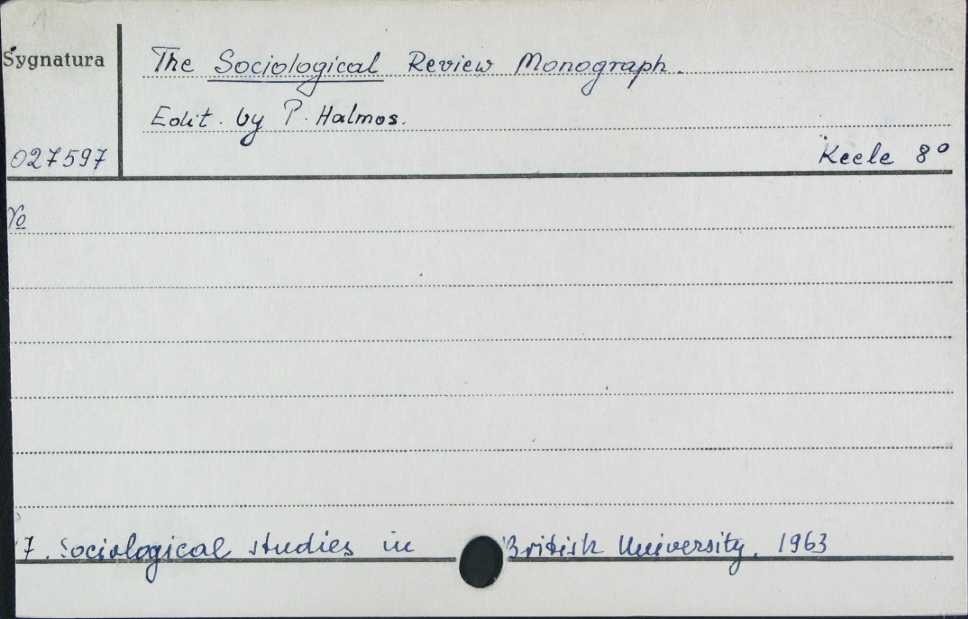 Sygnatura
The Sociological Review Monograph.
Edit. by P. Halmos.
027597
Keele 8°
№
7. Sociological studies in British University. 1963